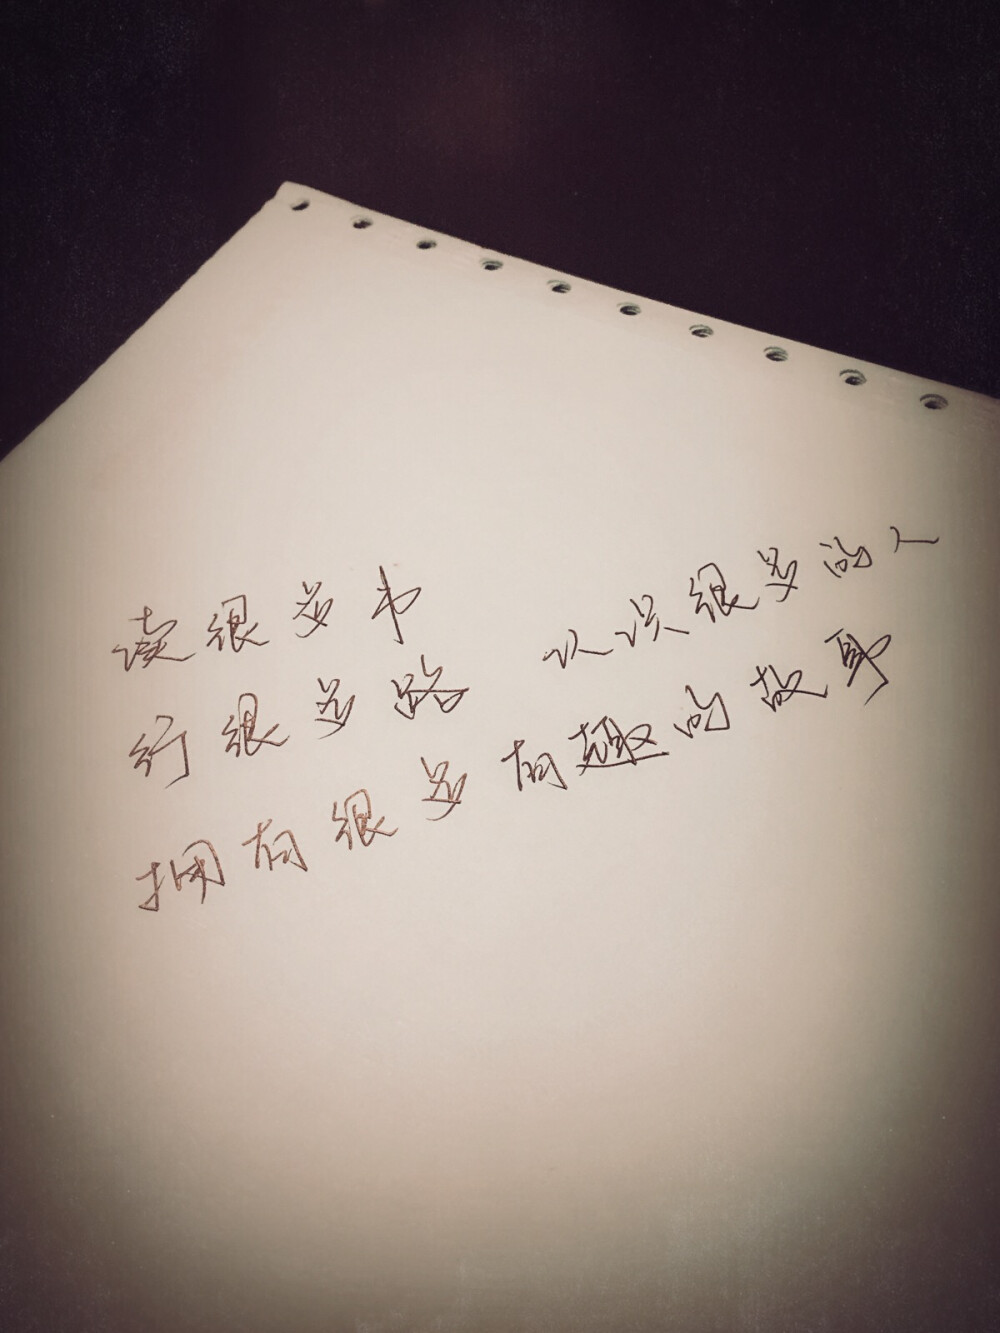 读很多书
行很多路 认识很多的人
拥有很多有趣的故事